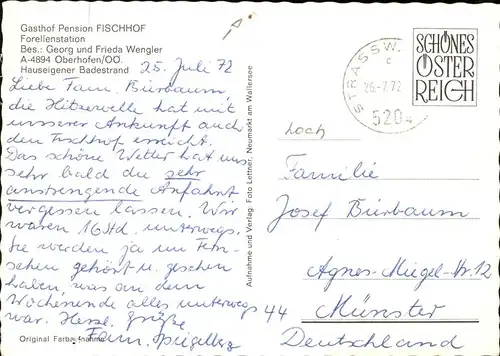 Gasthof Pension FISCHHOF
Forellenstation
Bes.: Georg und Frieda Wengler
A-4894 Oberhofen/OÖ.
Hauseigener Badestrand
25. Juli 72
Liebe Fam. Bierbaum,
die Hitzewelle hat mit
unserer Ankunft auch
den Fischhof erreicht.
Das schöne Wetter hat uns
sehr bald die sehr
anstrengende Anfahrt
vergessen lassen. Wir
waren 16 Std. unterwegs.
Sie werden ja im Fern-
sehen gehört u. gesehen
haben, was an dem
Wochenende alles unterwegs
war. Herzl. Grüße
Fam.
Original Farbaufnahme
Aufnahme und Verlag: Foto Lettner, Neumarkt am Wallersee
STRASSW
c
26.-7.72
5204
SCHÖNES
ÖSTER
REICH
Familie
Josef Bierbaum
Agnes-Miegel-Str. 12
44 Münster
Deutschland